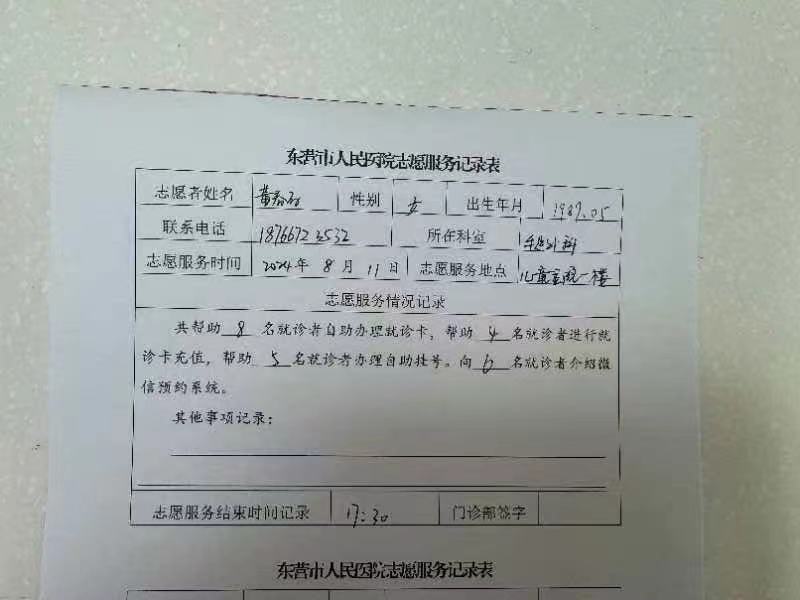 东营市人民医院志愿服务记录表
志愿者姓名 黄 性别 女 出生年月 1987.05
联系电话 18766723532 所在科室 外科
志愿服务时间 2024年 8 月 11 日 志愿服务地点 儿童医院一楼
志愿服务情况记录
共帮助 8 名就诊者自助办理就诊卡，帮助 4 名就诊者进行就
诊卡充值，帮助 5 名就诊者办理自助挂号。向 6 名就诊者介绍微
信预约系统。
其他事项记录：
志愿服务结束时间记录 17:30 门诊部签字
东营市人民医院志愿服务记录表